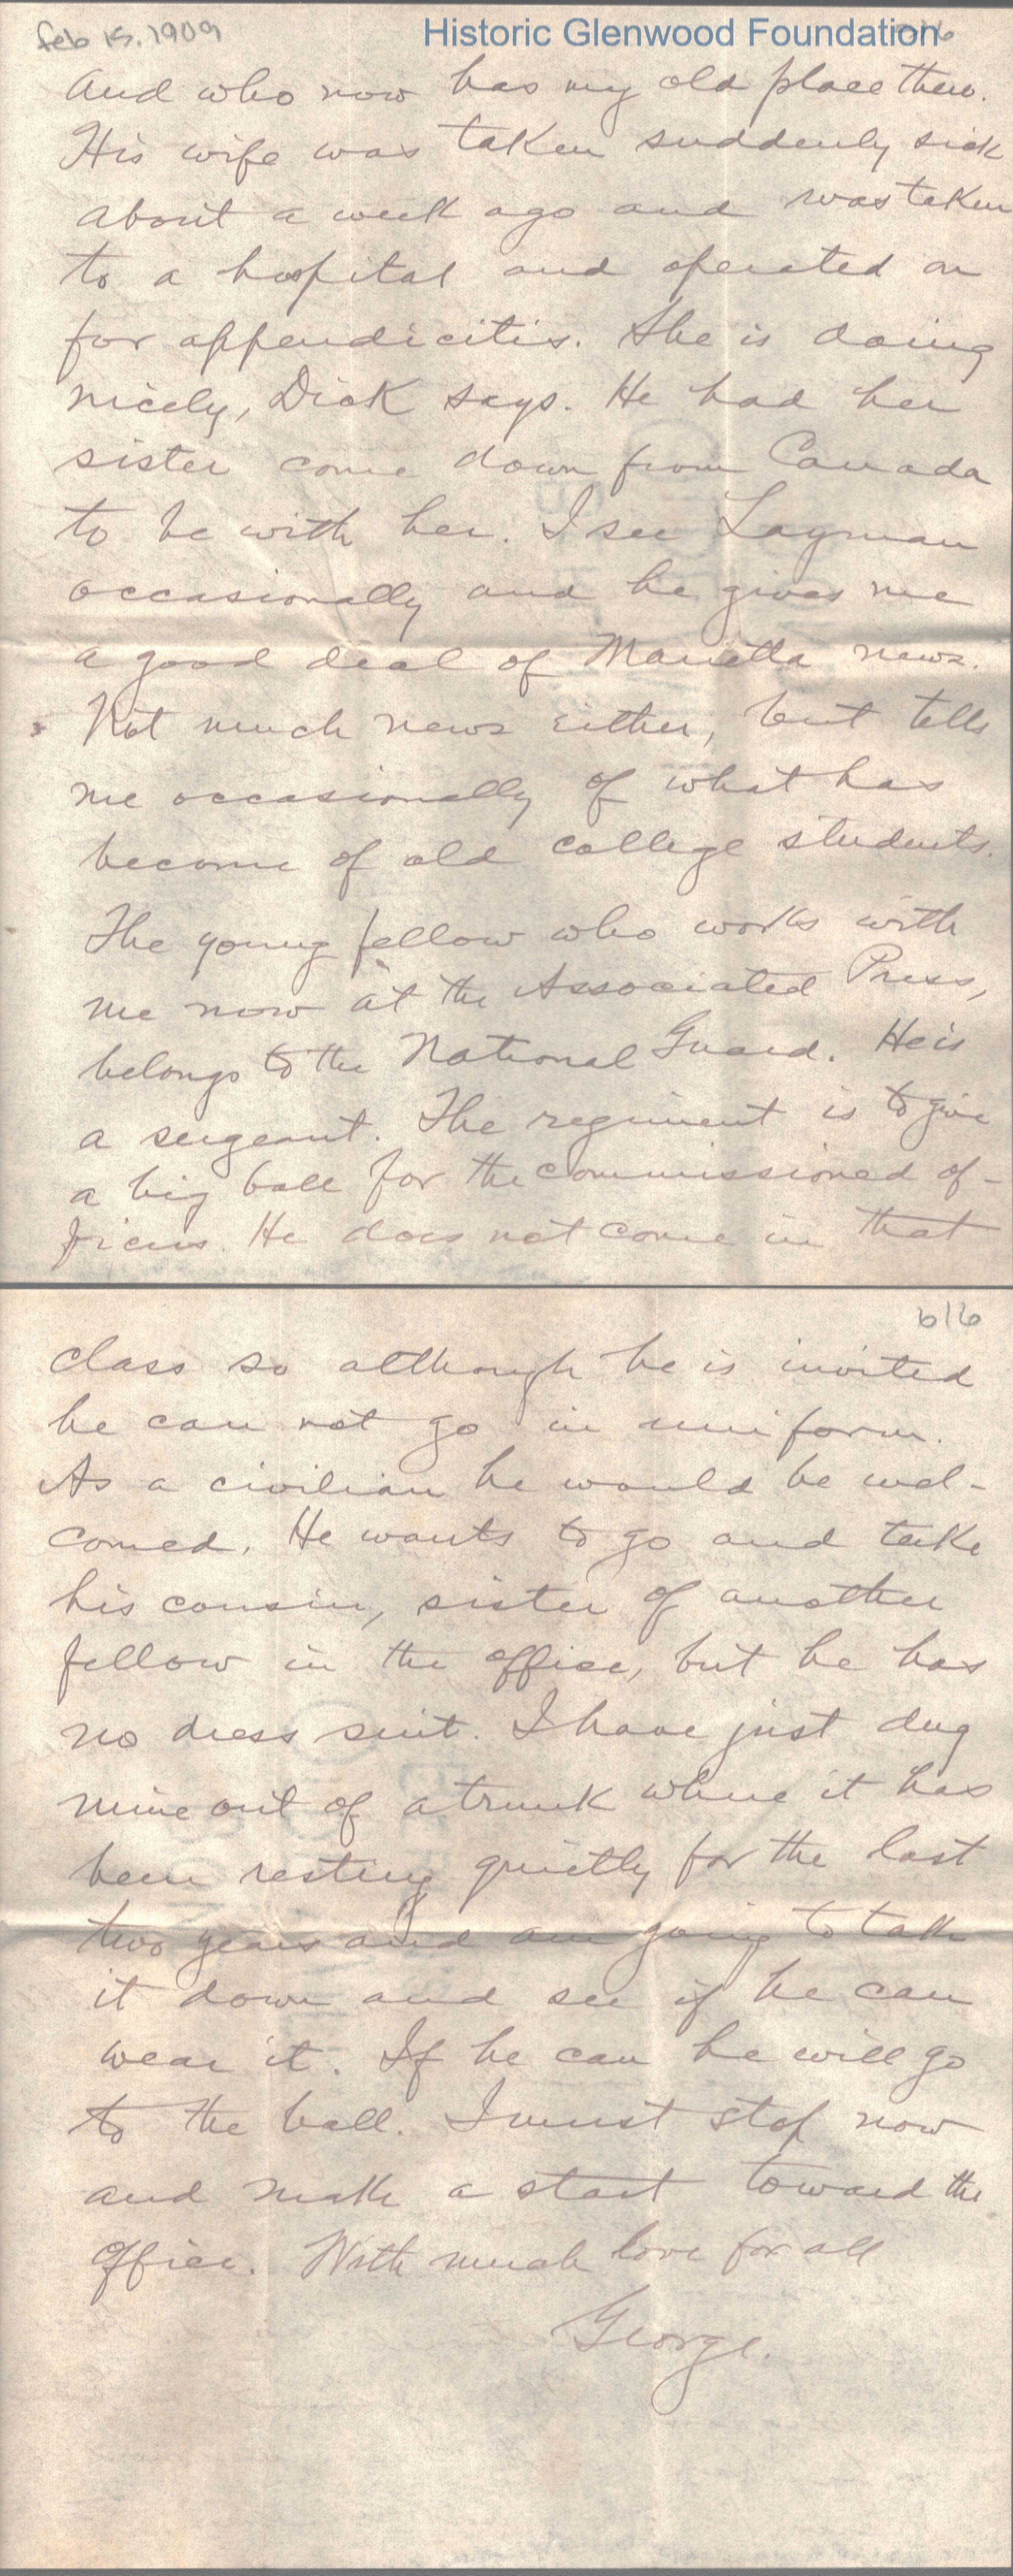 Feb 15, 1909
Historic Glenwood Foundation
and who now has my old place there.
His wife was taken suddenly sick
about a week ago and was taken
to a hospital and operated on
for appendicitis. She is doing
nicely, Dick says. He had her
sister come down from Canada
to be with her. I see Layman
occasionally and he gives me
a good deal of Marietta news.
Not much news either, but tells
me occasionally of what has
become of old college students.
The young fellow who works with
me now at the Associated Press,
belongs to the National Guard. He is
a sergeant. The regiment is to give
a big ball for the commissioned of-
ficers. He does not come in that
6/6
class so although he is invited
he can not go in uniform.
As a civilian he would be wel-
comed. He wants to go and take
his cousin, sister of another
fellow in the office, but he has
no dress suit. I have just dug
mine out of a trunk where it has
been resting quietly for the last
two years and am going to take
it down and see if he can
wear it. If he can he will go
to the ball. I must stop now
and make a start toward the
office. With much love for all
George.